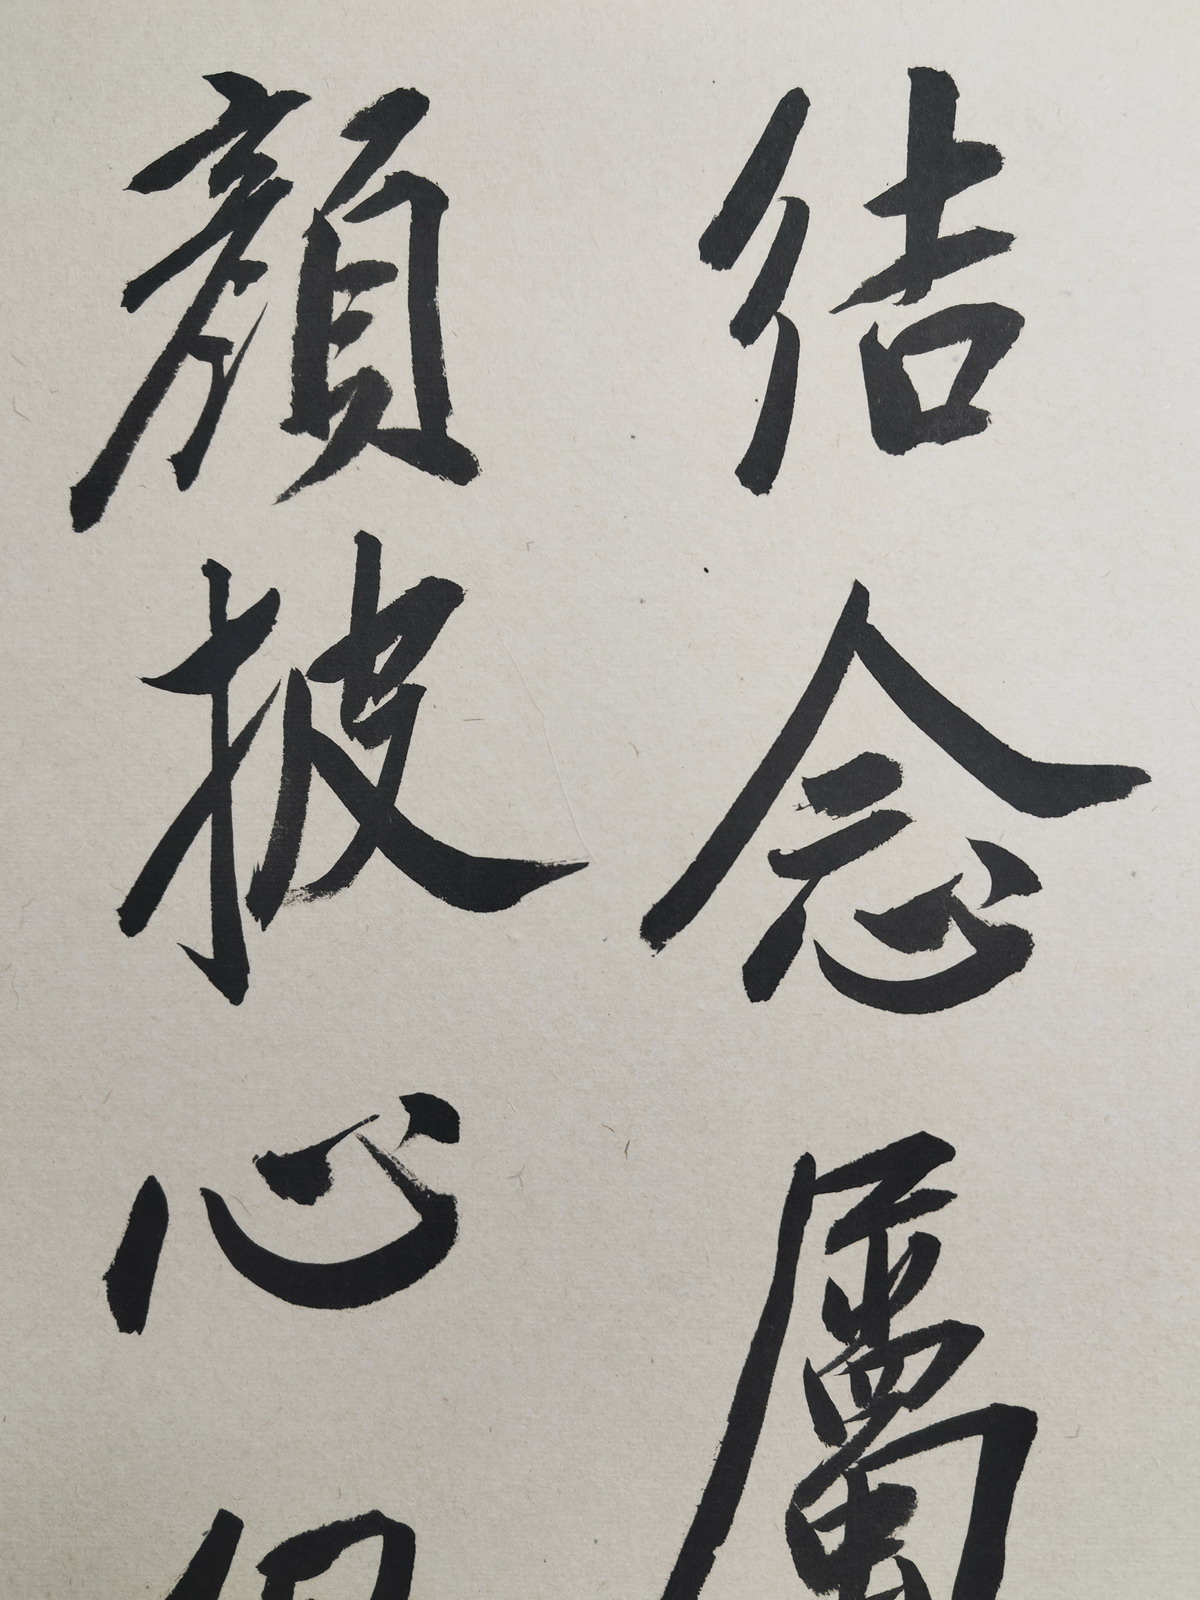 结念屬
顏披心